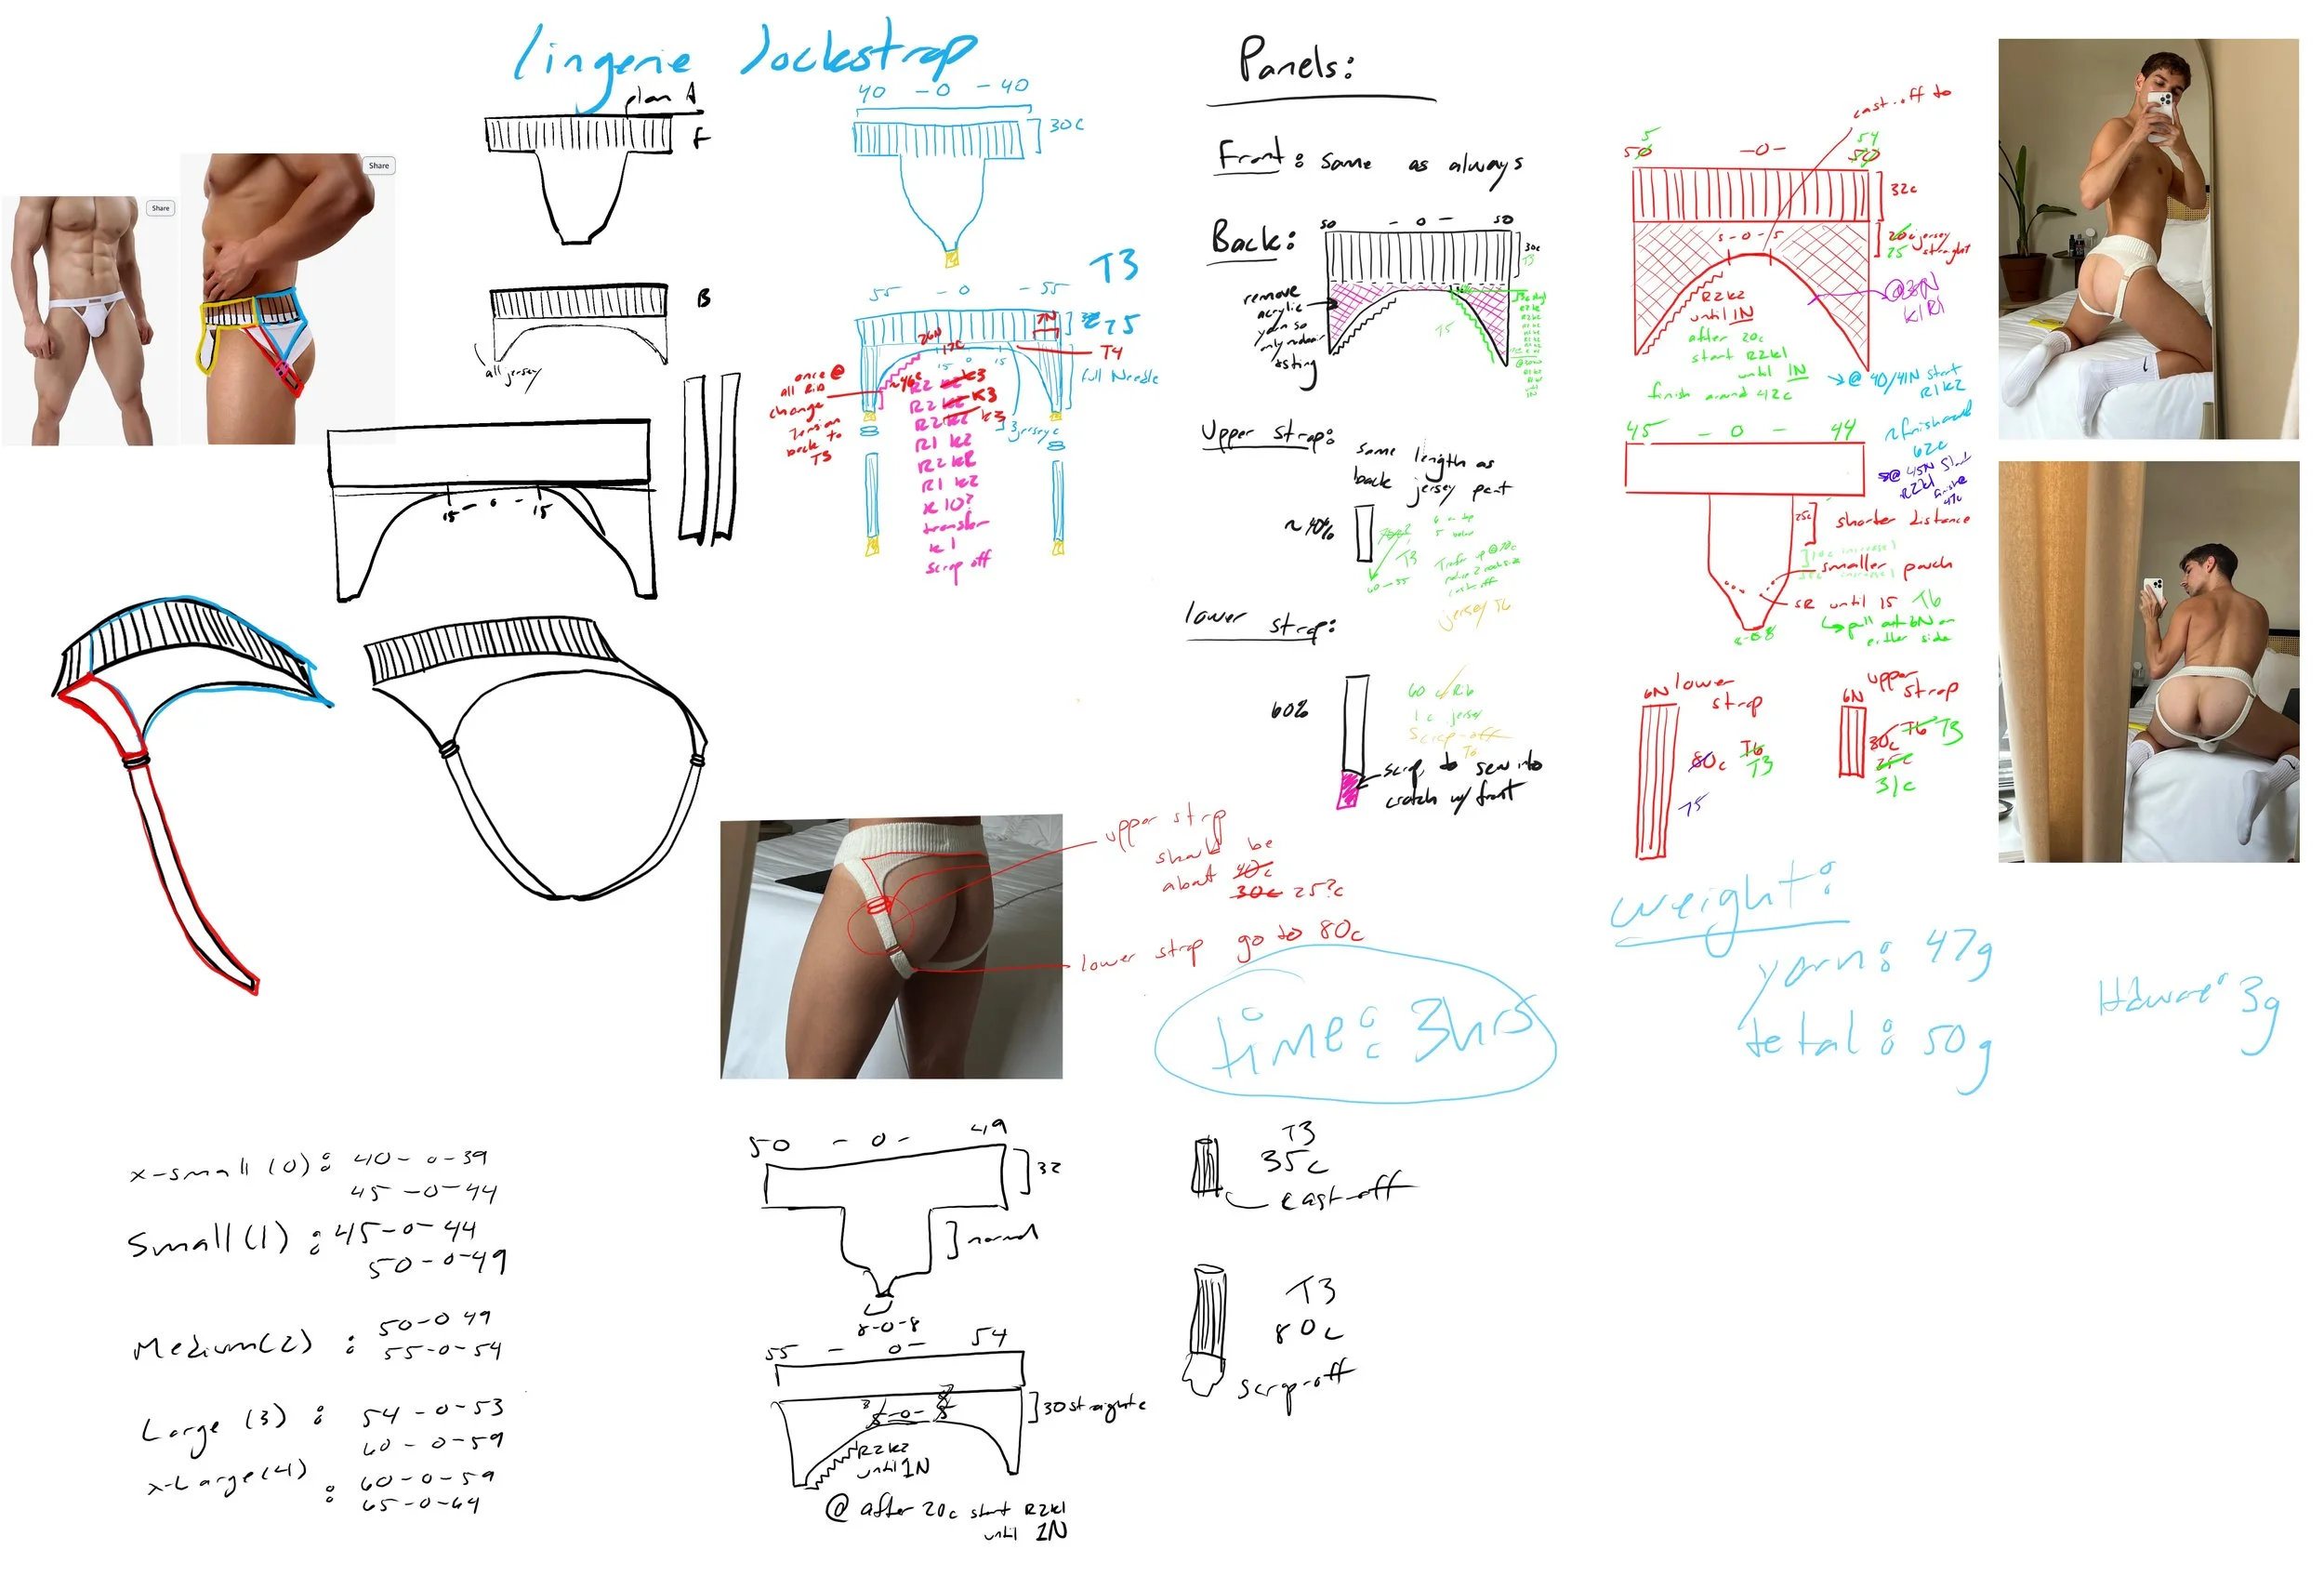 lingerie Jockstrap
plan A
F
B
all jersey
15 - 0 - 15
Share
Share
40 - 0 - 40
30c
T3
55 - 0 - 55
75
7N
T4
full Needle
26N
12c
15 0 15
~46c
3 jersey c
once @
all Rib
change
Tension
back to
T3
R2 K3
R2 K3
R2 K3
R1 K2
R2 K2
R1 K2
x 10?
transfer
K1
scrap off
Panels:
Front: Same as always
Back:
50 - 0 - 50
30c
T3
remove
acrylic
yarn so
15
Upper Strap:
same length as
back jersey part
~40%
T3
60-55
cast-off
jersey T6
lower strap:
60%
60 c Rib
1 c jersey
Scrap-off
T6
scrap, to sew into
crotch w/ front
upper strap
should be
about 40c
30c 25?c
lower strap go to 80c
time: 3hrs
cast-off to
5
50 -0- 50
54
32c
5-0-5
20c jersey
25 straight
R2K2
until 1N
after 20c
start R2K1
until 1N
finish around 42c
@ 40/41N start
R1K2
K1R1
45 - 0 - 44
62c
@ 45N Start
R2K1
finishes
47c
25c
shorter distance
smaller pouch
SR until 15 T6
pull out 6N on
either side
8-0-8
6N lower
strap
80c T6
T3
75
6N upper
strap
30c T6 T3
25c
31c
weight:
yarn: 47g
total: 50g
3g
x-small (0): 40-0-39
45-0-44
Small (1): 45-0-44
50-0-49
Medium(2): 50-0 49
55-0-54
Large (3): 54-0-53
60-0-59
x-Large(4): 60-0-59
65-0-64
50 - 0 - 49
32
normal
8-0-8
55 - 0 - 54
30 straight c
R2K2
until 1N
@ after 20c start R2K1
until 1N
T3
35c
cast-off
T3
80c
scrap-off